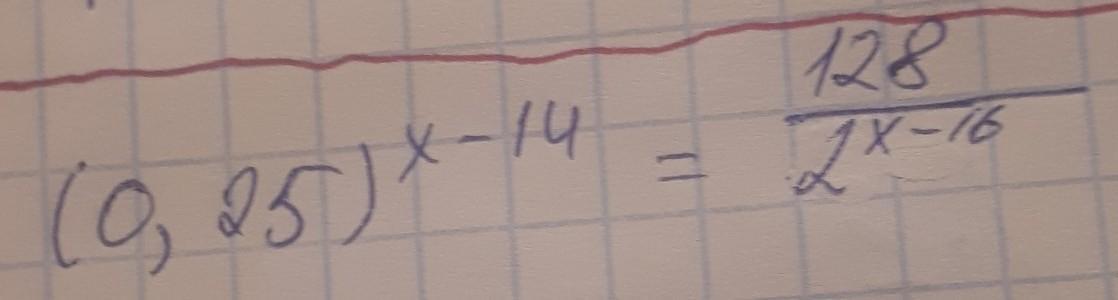 (0,25)^{x-14} = \frac{128}{2^{x-16}}